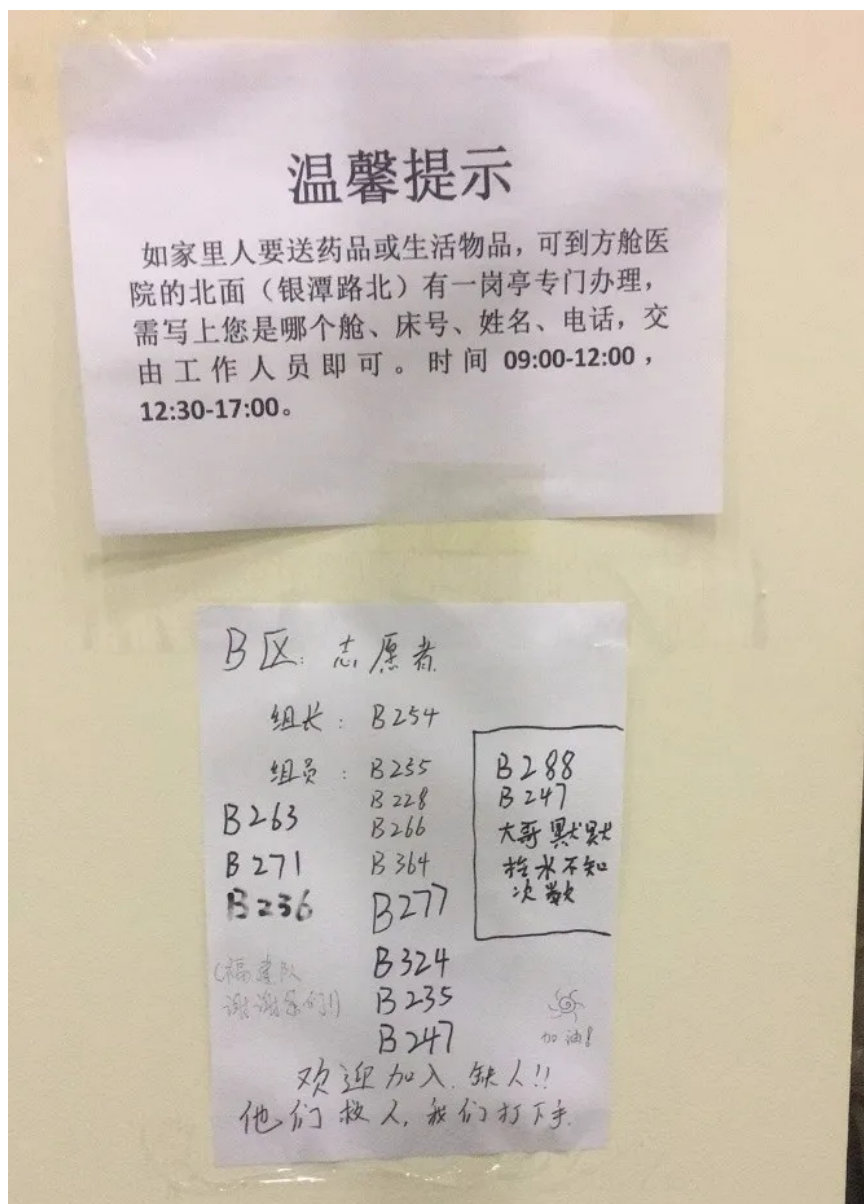 温馨提示
如家里人要送药品或生活物品，可到方舱医
院的北面（银潭路北）有一岗亭专门办理，
需写上您是哪个舱、床号、姓名、电话，交
由工作人员即可。时间 09:00-12:00，
12:30-17:00。
B区：志愿者
组长：B254
组员：B255
B228
B266
B364
B277
B324
B235
B247
B263
B271
B236
B288
B247
大哥默默
拎水不知
次数
（福建队
谢谢你们！）
加油！
欢迎加入.缺人!!
他们救人,我们打下手.